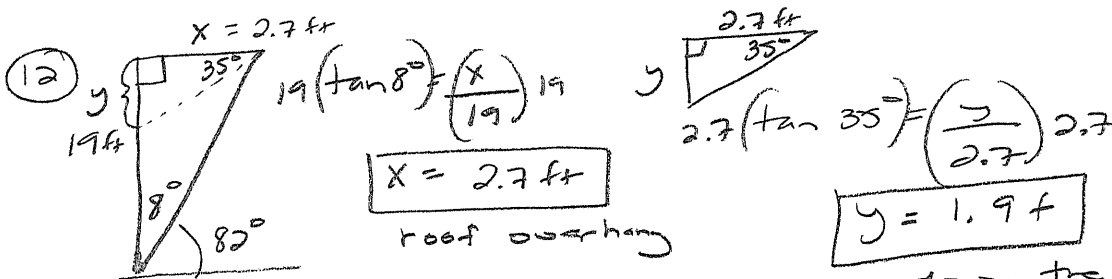 12
x = 2.7 ft
35°
y
19 ft
8°
82°
19 (tan 8°) = (x/19) 19
x = 2.7 ft
roof overhang
2.7 ft
35°
y
2.7 (tan 35°) = (y/2.7) 2.7
y = 1.9 f